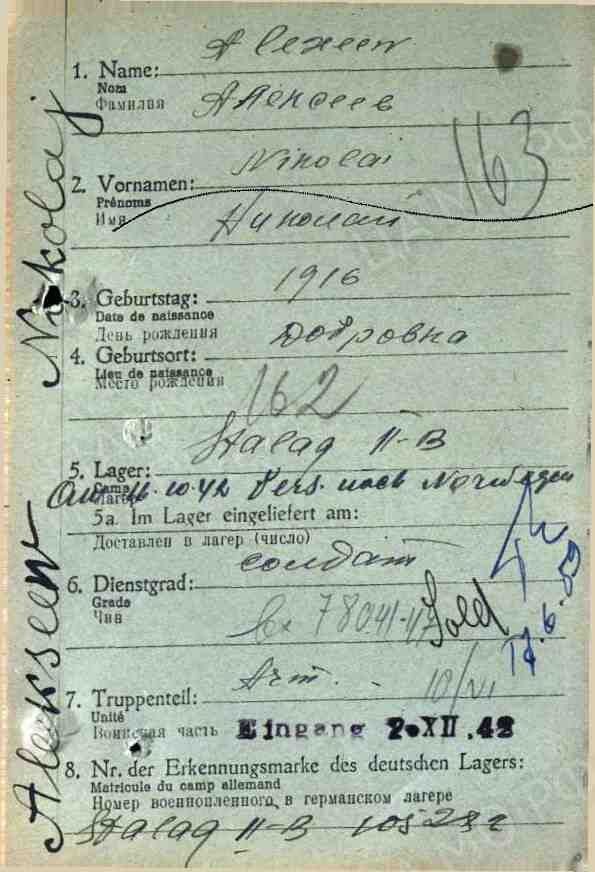 Alexeew
1. Name:
Nom
Фамилия
Алексеев
Nikolai
163
2. Vornamen:
Prénoms
Имя
Николай
1916
3. Geburtstag:
Date de naissance
День рождения
4. Geburtsort:
Lieu de naissance
Место рождения
162
Stalag II-B
5. Lager:
Camp
Лагерь
Am 16.10.42 Vers. nach Norwegen
5a. Im Lager eingeliefert am:
Доставлен в лагерь (число)
солдат
6. Dienstgrad:
Grade
Чин
Sold
Вх 78041-117
17.6.
Arm.
10/VI
7. Truppenteil:
Unité
Воинская часть
Eingang 2. XII. 42
8. Nr. der Erkennungsmarke des deutschen Lagers:
Matricule du camp allemand
Номер военнопленного в германском лагере
Stalag II-B
Alekseew Nikolaj